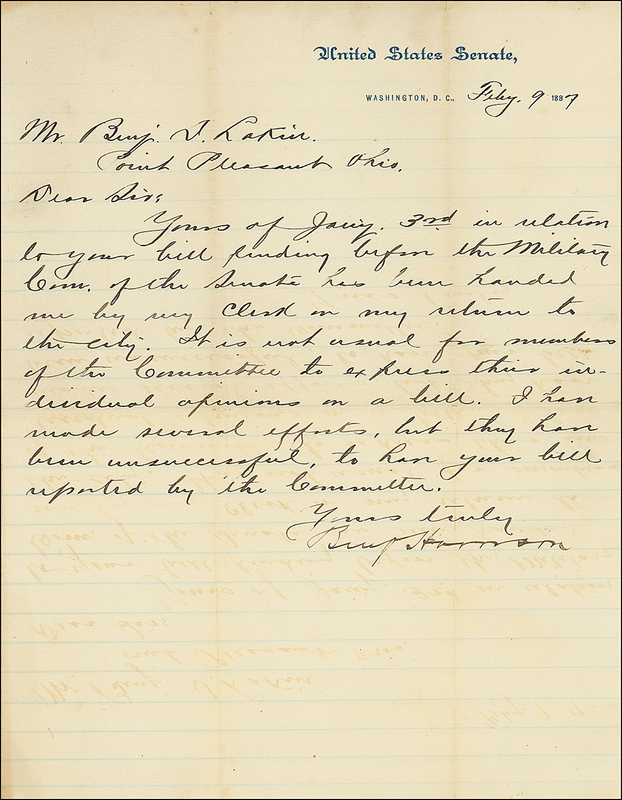 United States Senate,
WASHINGTON, D. C., Feby. 9 1887
Mr. Benj. F. Lakin.
Point Pleasant Ohio.
Dear Sir;
Yours of Jany. 3rd in relation
to your bill pending before the Military
Com. of the Senate has been handed
me by my Clerk on my return to
the city. It is not usual for members
of the Committee to express their in-
dividual opinions on a bill. I have
made several efforts, but they have
been unsuccessful, to have your bill
reported by the Committee.
Yours truly
Benj Harrison